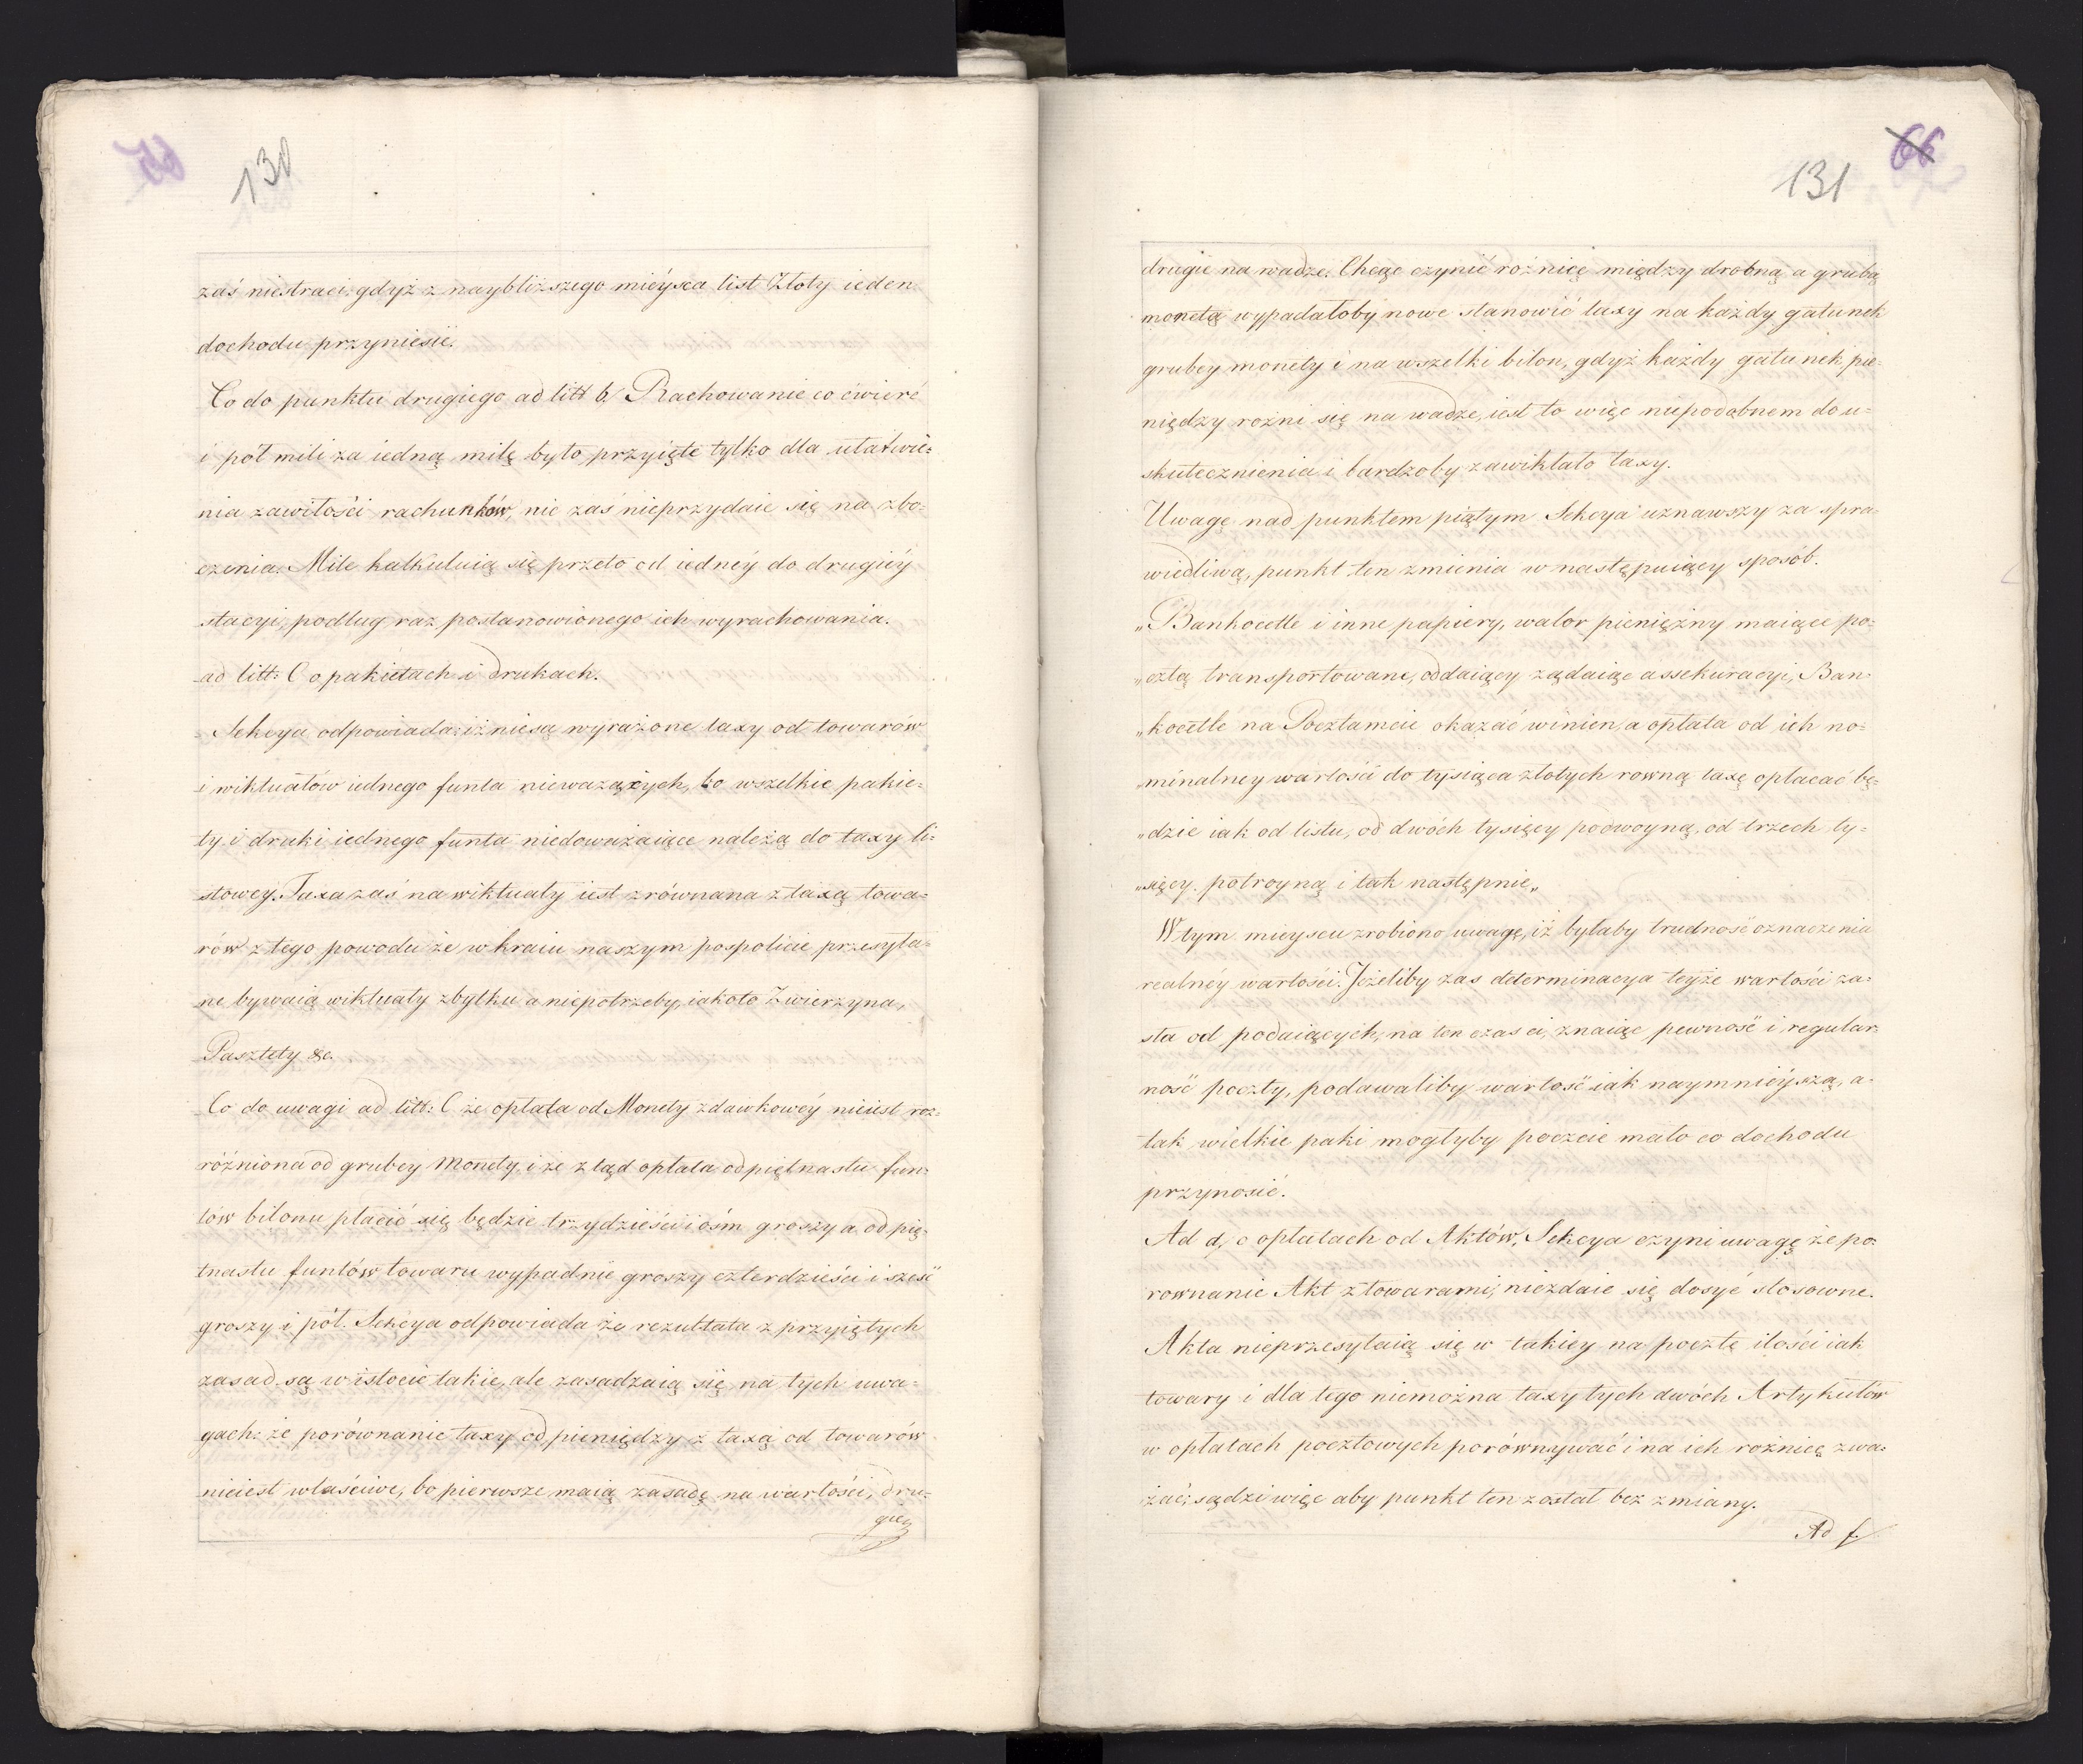 130
zaś niestraci, gdyż z naybliższego mieysca list Złoty ieden
dochodu przyniesie.
Co do punktu drugiego ad litt b. Rachowanie co ćwierć
i pół mili za iedną milę było przyięte tylko dla ułatwie=
nia zawiłości rachunków, nic zaś nieprzydaie się na zbo=
czenia. Mile kalkuluią się przeto od iednéy do drugiéy
stacyi, podług raz postanowionego ich wyrachowania.
ad litt: C o pakietach i drukach.
Sekcya odpowiada: iż niesą wyrażone taxy od towarów
i wiktuałów iednego funta nieważących, bo wszelkie pakie=
ty i druki iednego funta niedoważaiące należą do taxy li=
stowey. Taxa zaś na wiktuały iest zrównana z taxą towa=
rów z tego powodu że w kraiu naszym pospolicie przesyła=
ne bywaią wiktuały zbytku a niepotrzeby, iakoto Zwierzyna,
Pasztety &c.
Co do uwagi ad litt: C że opłata od Monety zdawkowéy nieiest roz=
różniona od grubey Monety, i że ztąd opłata od piętnastu fun=
tów bilonu płacić się będzie trzydzieści i ośm groszy a od pię=
tnastu funtów towaru wypadnie groszy czterdzieści i sześć
groszy i pół. Sekcya odpowiada że rezultata z przyiętych
zasad są w istocie takie, ale zasadzaią się na tych uwa=
gach: że porównanie taxy od pieniędzy z taxą od towarów
nieiest właściwe, bo pierwsze maią zasadę na wartości, dru=
gie
131
66
drugie na wadze. Chcąc czynić rożnicę między drobną a grubą
monetą wypadałoby nowe stanowić taxy na każdy gatunek
grubey monety i na wszelki bilon, gdyż każdy gatunek pie=
niędzy rożni się na wadze, iest to więc niepodobnem do u=
skutecznienia i bardzoby zawikłało taxy.
Uwagę nad punktem piątym Sekcya uznawszy za spra=
wiedliwą, punkt ten zmienia w następuiący sposób.
„Bankocetle i inne papiery, walor pieniężny maiące po=
„cztą transportowane, oddaiący żądaiąc assekuracyi, Ban=
„kocetle na Pocztamcie okazać winien, a opłata od ich no=
„minalney wartości do tysiąca złotych rowną taxę opłacać bę=
„dzie iak od listu, od dwóch tysięcy podwoyną, od trzech ty=
„sięcy potroyną i tak następnie„
W tym mieyscu zrobiono uwagę, iż byłaby trudność oznaczenia
realnéy wartości. Jeżeliby zas determinacya teyże wartości za=
sta od podaiących, na ten czas ci, znaiąc pewność i regular=
ność poczty, podawaliby wartość iak naymnieyszą, a=
tak wielkie paki mogłyby poczcie mało co dochodu
przynosić.
Ad d, o opłatach od Aktów, Sekcya czyni uwagę że po=
rownanie Akt z towarami, niezdaie się dosyć stosowne.
Akta nieprzesyłaią się w takiey na pocztę ilości iak
towary i dla tego niemożna taxy tych dwóch Artykułów
w opłatach pocztowych porównywać i na ich rożnicę zwa=
żać; sądzi więc aby punkt ten został bez zmiany.
Ad f